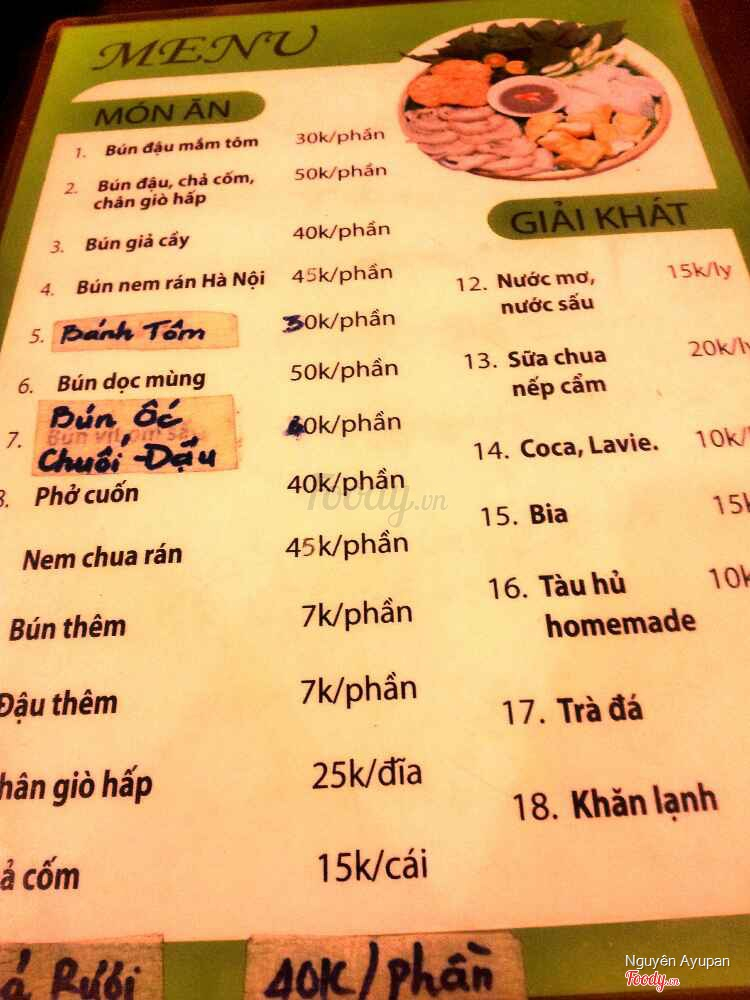 MENU
MÓN ĂN
1. Bún đậu mắm tôm 30k/phần
2. Bún đậu, chả cốm, 50k/phần
chân giò hấp
3. Bún giả cầy 40k/phần
4. Bún nem rán Hà Nội 45k/phần
5. Bánh Tôm 30k/phần
6. Bún dọc mùng 50k/phần
7. Bún Ốc 40k/phần
Chuối Đậu
8. Phở cuốn 40k/phần
Nem chua rán 45k/phần
Bún thêm 7k/phần
Đậu thêm 7k/phần
hân giò hấp 25k/đĩa
ả cốm 15k/cái
Rươi 40K/phần
GIẢI KHÁT
12. Nước mơ, 15k/ly
nước sấu
13. Sữa chua 20k/ly
nếp cẩm
14. Coca, Lavie. 10k/
15. Bia 15k
16. Tàu hủ 10k
homemade
17. Trà đá
18. Khăn lạnh
Foody.vn
Nguyên Ayupan
Foody.vn